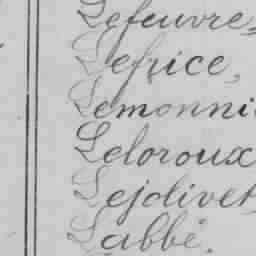 Lefeuvre,
Lefrice,
Lemonni
Leloroux
Lejolivet
Labbé.